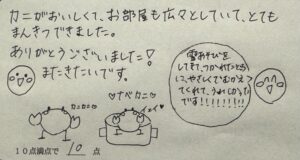 カニがおいしくて、お部屋も広々としていて、とても
まんきつできました。
ありがとうございました!
またきたいです。
雪あそびを
してきて、つかれたところ
やさしくでむかえ
てくれて、うれしかった
です!!!!!!!!
カニカニ♡
♡ナベカニ♡
イェイ♡
10点満点で 10 点